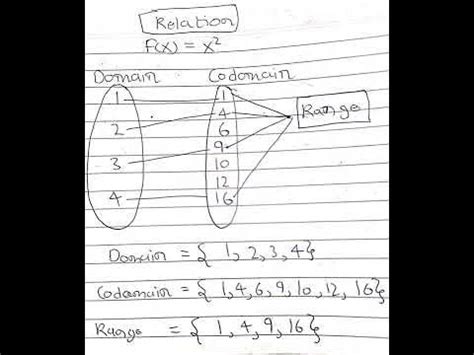 Relation
f(x) = x²
Domain Codomain
1 1
2 4
6
3 9
10
12
4 16
Range
Domain = { 1, 2, 3, 4}
Codomain = { 1, 4, 6, 9, 10, 12, 16}
Range = { 1, 4, 9, 16}